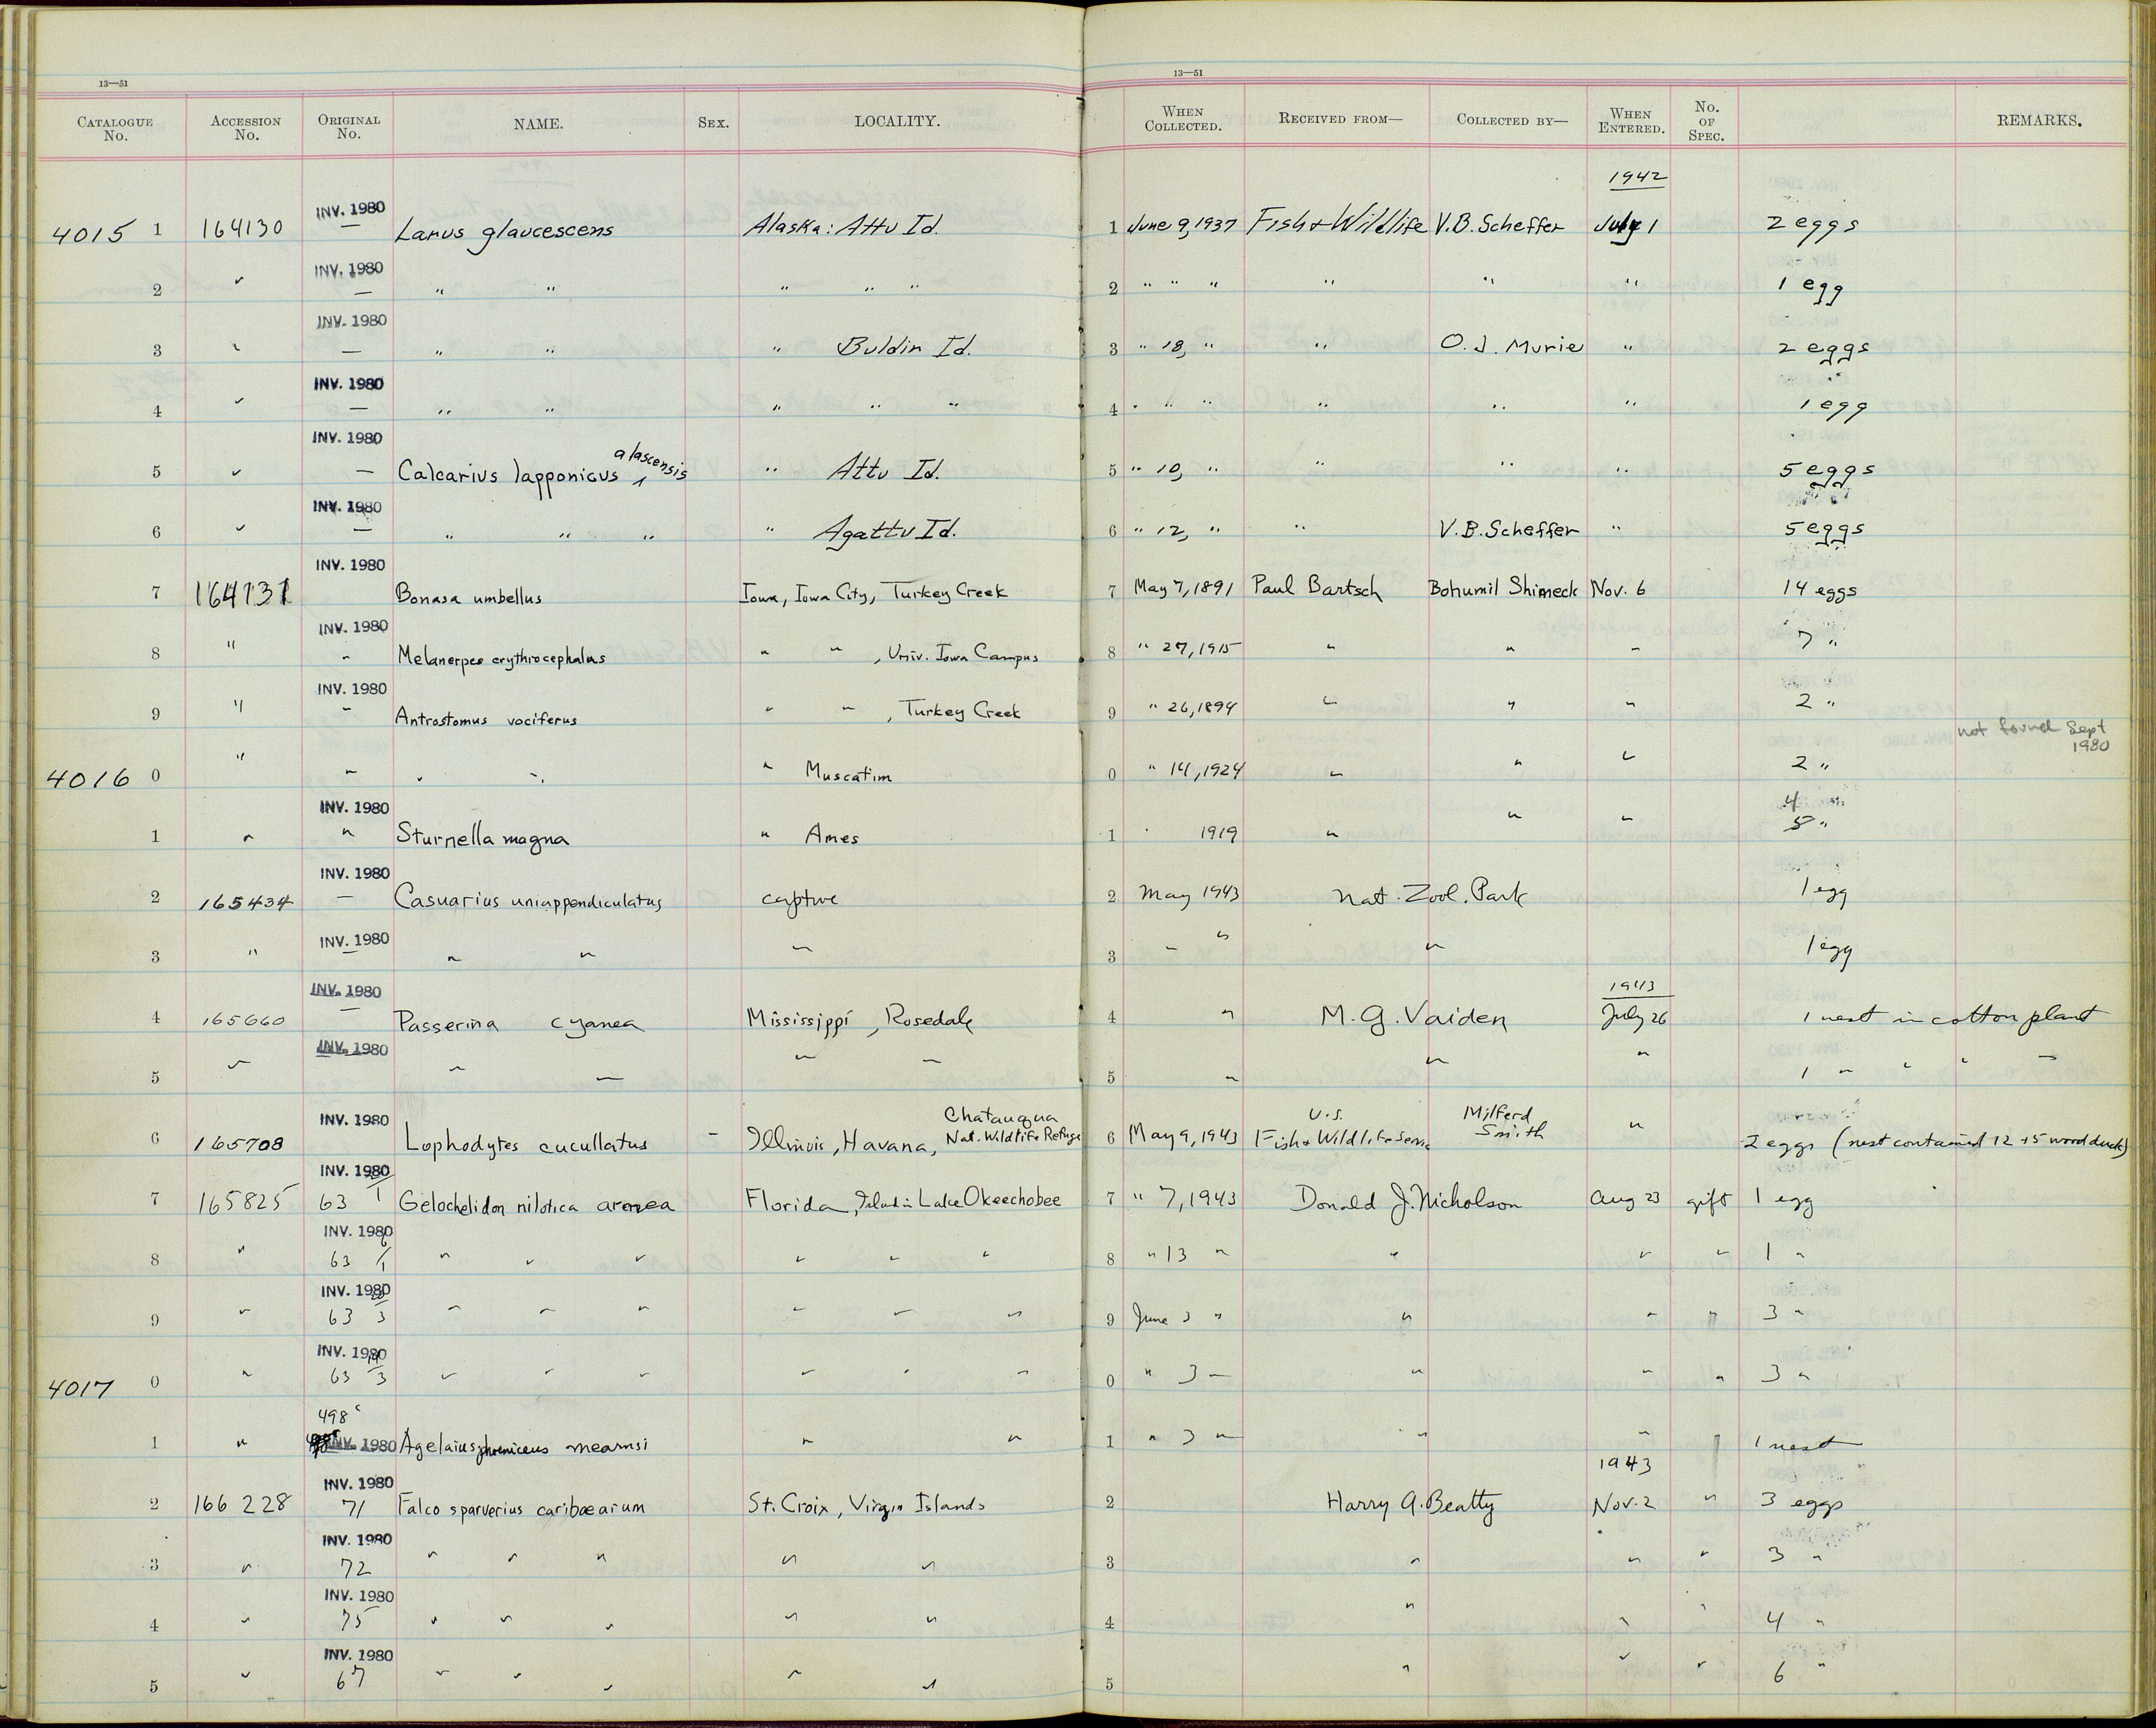 13—51
13—51
CATALOGUE No. ACCESSION No. ORIGINAL No. NAME. SEX. LOCALITY. WHEN COLLECTED. RECEIVED FROM— COLLECTED BY— WHEN ENTERED. No. OF SPEC. REMARKS.
1942
INV. 1980
4015 1 164130 — Larus glaucescens Alaska: Attu Id. 1 June 9, 1937 Fish & Wildlife V.B. Scheffer July 1 2 eggs
INV. 1980
2 " — " " " " " 2 " " " " " " 1 egg
INV. 1980
3 " — " " " Buldin Id. 3 " 18, " " O.J. Murie " 2 eggs
INV. 1980
4 " — " " " " " 4 " " " " " " 1 egg
INV. 1980
5 " — Calcarius lapponicus alascensis " Attu Id. 5 " 10, " " " " 5 eggs
INV. 1980
6 " — " " " " Agattu Id. 6 " 12, " " V.B. Scheffer " 5 eggs
INV. 1980
7 164131 Bonasa umbellus Iowa, Iowa City, Turkey Creek 7 May 7, 1891 Paul Bartsch Bohumil Shimeck Nov. 6 14 eggs
INV. 1980
8 " " Melanerpes erythrocephalus " " , Univ. Iowa Campus 8 " 27, 1915 " " " 7 "
INV. 1980
9 " " Antrostomus vociferus " " , Turkey Creek 9 " 26, 1894 " " " 2 "
not found Sept 1980
4016 0 " " " " " Muscatim 0 " 14, 1924 " " " 2 "
INV. 1980
4 "
1 " " Sturnella magna " Ames 1 " 1919 " " " 5 "
INV. 1980
2 165434 — Casuarius uniappendiculatus captive 2 May 1943 Nat. Zool. Park 1 egg
INV. 1980
3 " — " " " 3 " " " 1 egg
INV. 1980
1943
4 165660 — Passerina cyanea Mississippi, Rosedale 4 " M. G. Vaiden July 26 1 nest in cotton plant
INV. 1980
5 " " " " " 5 " " " 1 " " "
INV. 1980
Chatauqua U.S. Milferd
6 165708 Lophodytes cucullatus - Illinois, Havana, Nat. Wildlife Refuge 6 May 9, 1943 Fish & Wildlife Service Smith " 2 eggs (nest contained 12 +5 wood duck)
INV. 1980
7 165825 63 1 Gelochelidon nilotica aranea Florida, Island in Lake Okeechobee 7 " 7, 1943 Donald J. Nicholson Aug 23 gift 1 egg
INV. 1980
8 " 63 6/1 " " " " " " 8 " 13 " " " " 1 "
INV. 1980
9 " 63 /3 " " " " " " 9 June 3 " " " " 3 "
INV. 1980
4017 0 " 63 /3 " " " " " " 0 " 3 " " " " 3 "
498
1 " INV. 1980 Agelaius phoeniceus mearnsi " " 1 " 3 " " " 1 nest
1943
INV. 1980
2 166 228 71 Falco sparverius caribaearum St. Croix, Virgin Islands 2 Harry A. Beatty Nov. 2 " 3 eggs
INV. 1980
3 " 72 " " " " " 3 " " " 3 "
INV. 1980
4 " 75 " " " " " 4 " " " 4 "
INV. 1980
5 " 67 " " " " " 5 " " " 6 "